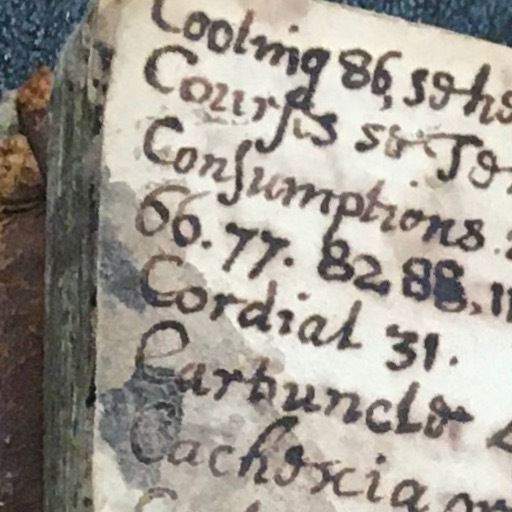 Cooling 86, se he
Courses
Consumptions.
66. 77. 82, 88, 11
Cordial 31.
Carbuncle
Cachexia